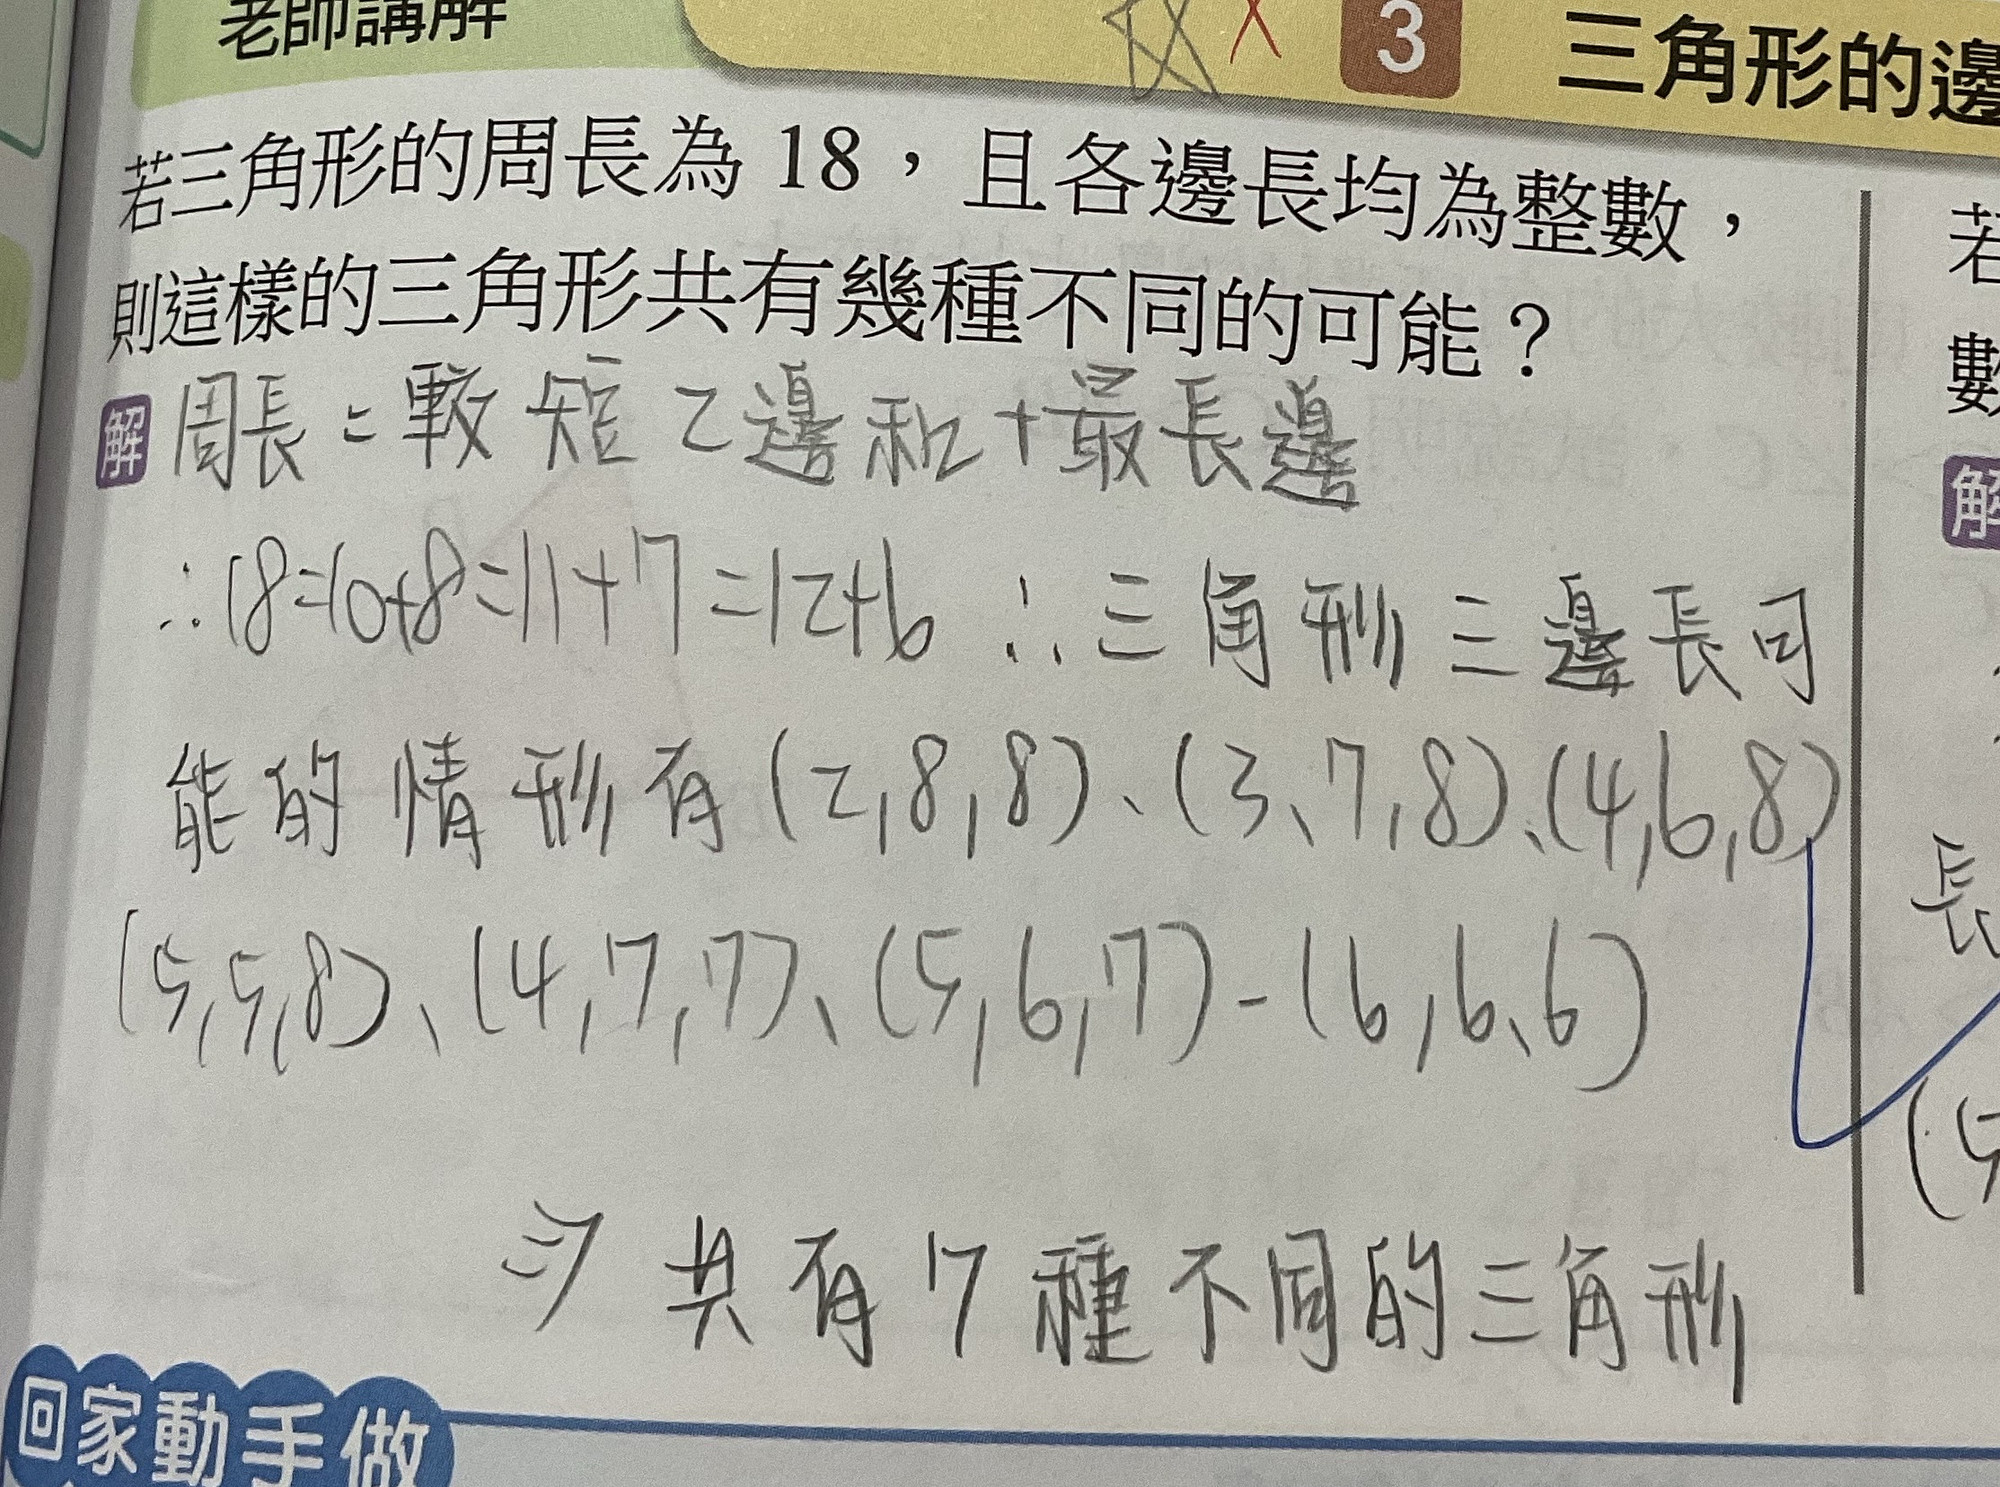 老師講解
3 三角形的邊
若三角形的周長為 18，且各邊長均為整數，
則這樣的三角形共有幾種不同的可能？
解 周長=較短2邊和+最長邊
∴18=10+8=11+7=12+6 ∴三角形三邊長可
能的情形有(2,8,8)、(3、7,8)、(4,6,8)
(5,5,8)、(4,7,7)、(5,6,7)-(6,6、6)
⇒共有7種不同的三角形
回家動手做
若
數
解
長
(5